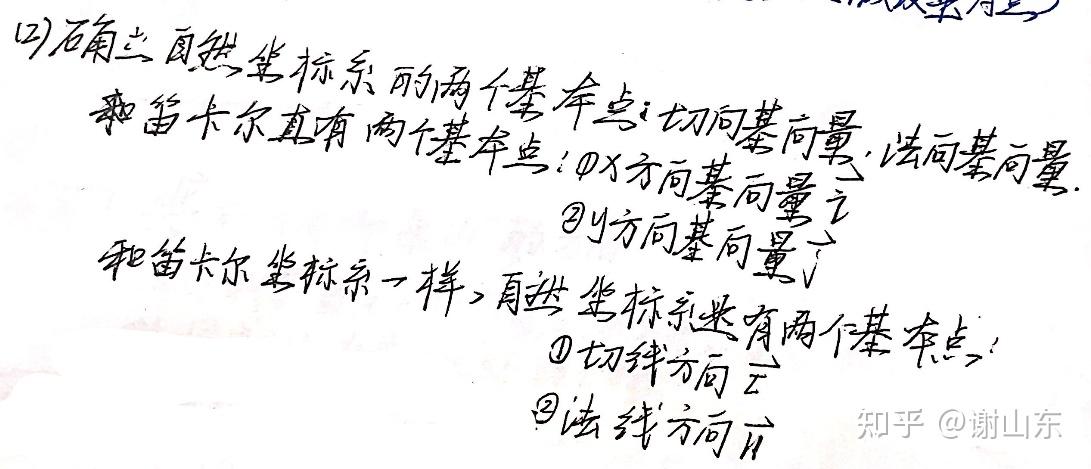 (2)确立自然坐标系的两个基本点:切向基向量,法向基向量.
和笛卡尔直有两个基本点:①X方向基向量 i⃗
②y方向基向量 j⃗
和笛卡尔坐标系一样,自然坐标系也有两个基本点:
①切线方向 τ⃗
②法线方向 n⃗
知乎 @谢山东